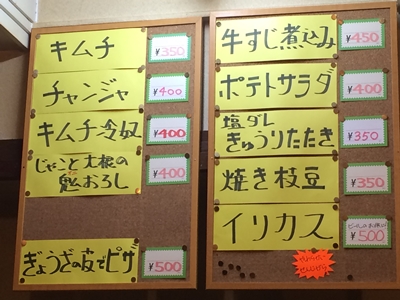 キムチ ¥350
チャンジャ ¥400
キムチ冷奴 ¥400
じゃこと大根の
鬼おろし ¥400
ぎょうざの皮でピザ ¥500
牛すじ煮込み ¥450
ポテトサラダ ¥400
塩ダレ
きゅうりたたき ¥350
焼き枝豆 ¥350
イリカス
¥500